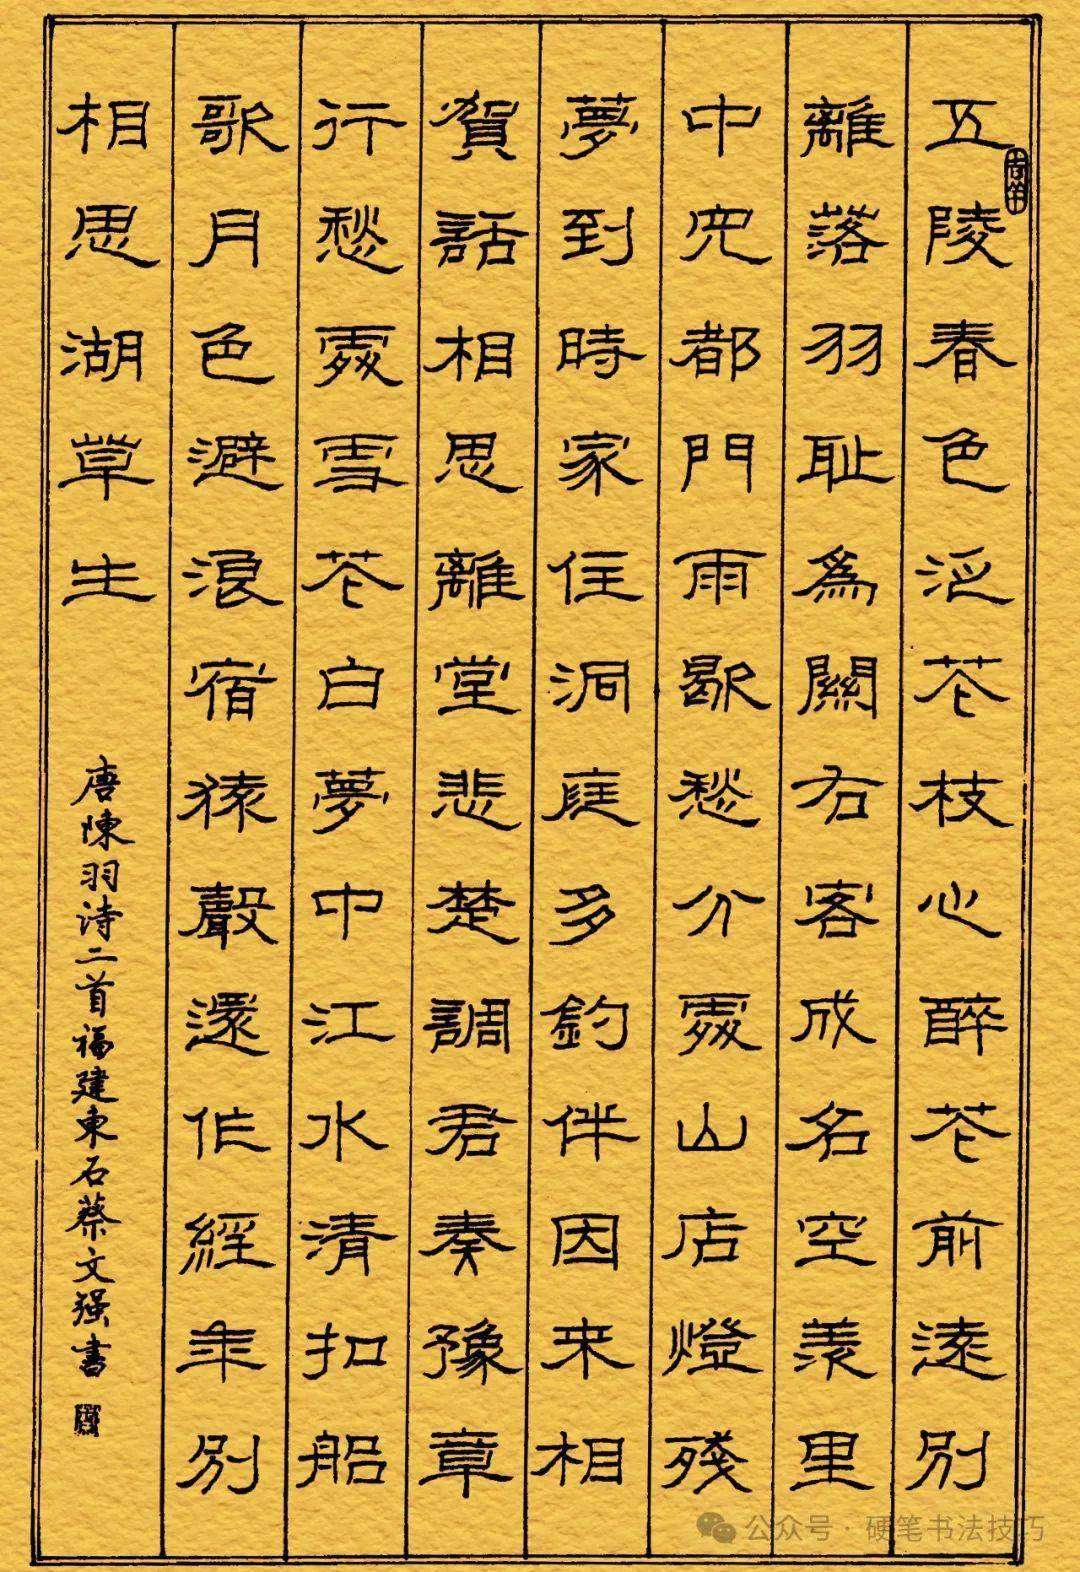 五陵春色泛花枝心醉花前遠別
離落羽耻為關右客成名空羨里
中兒都門雨歇愁分處山店燈殘
夢到時家住洞庭多釣伴因来相
賀話相思離堂悲楚調君奏豫章
行愁處雪花白夢中江水清扣船
歌月色避浪宿猿聲還作經年別
相思湖草生
唐陳羽诗二首福建東石蔡文强書
公众号·硬笔书法技巧